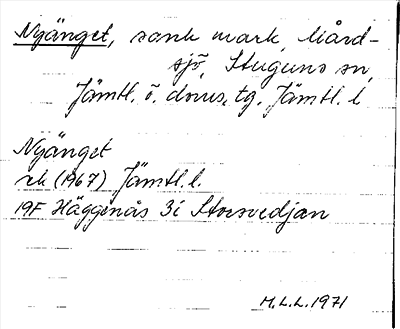 Nyänget, sank mark, Mård-
sjö, Stuguns sn,
Jämtl. ö. doms. tg, Jämtl. l
Nyänget
rk (1967) Jämtl. l.
19F Häggenås 3i Storsvedjan
M.L.L. 1971